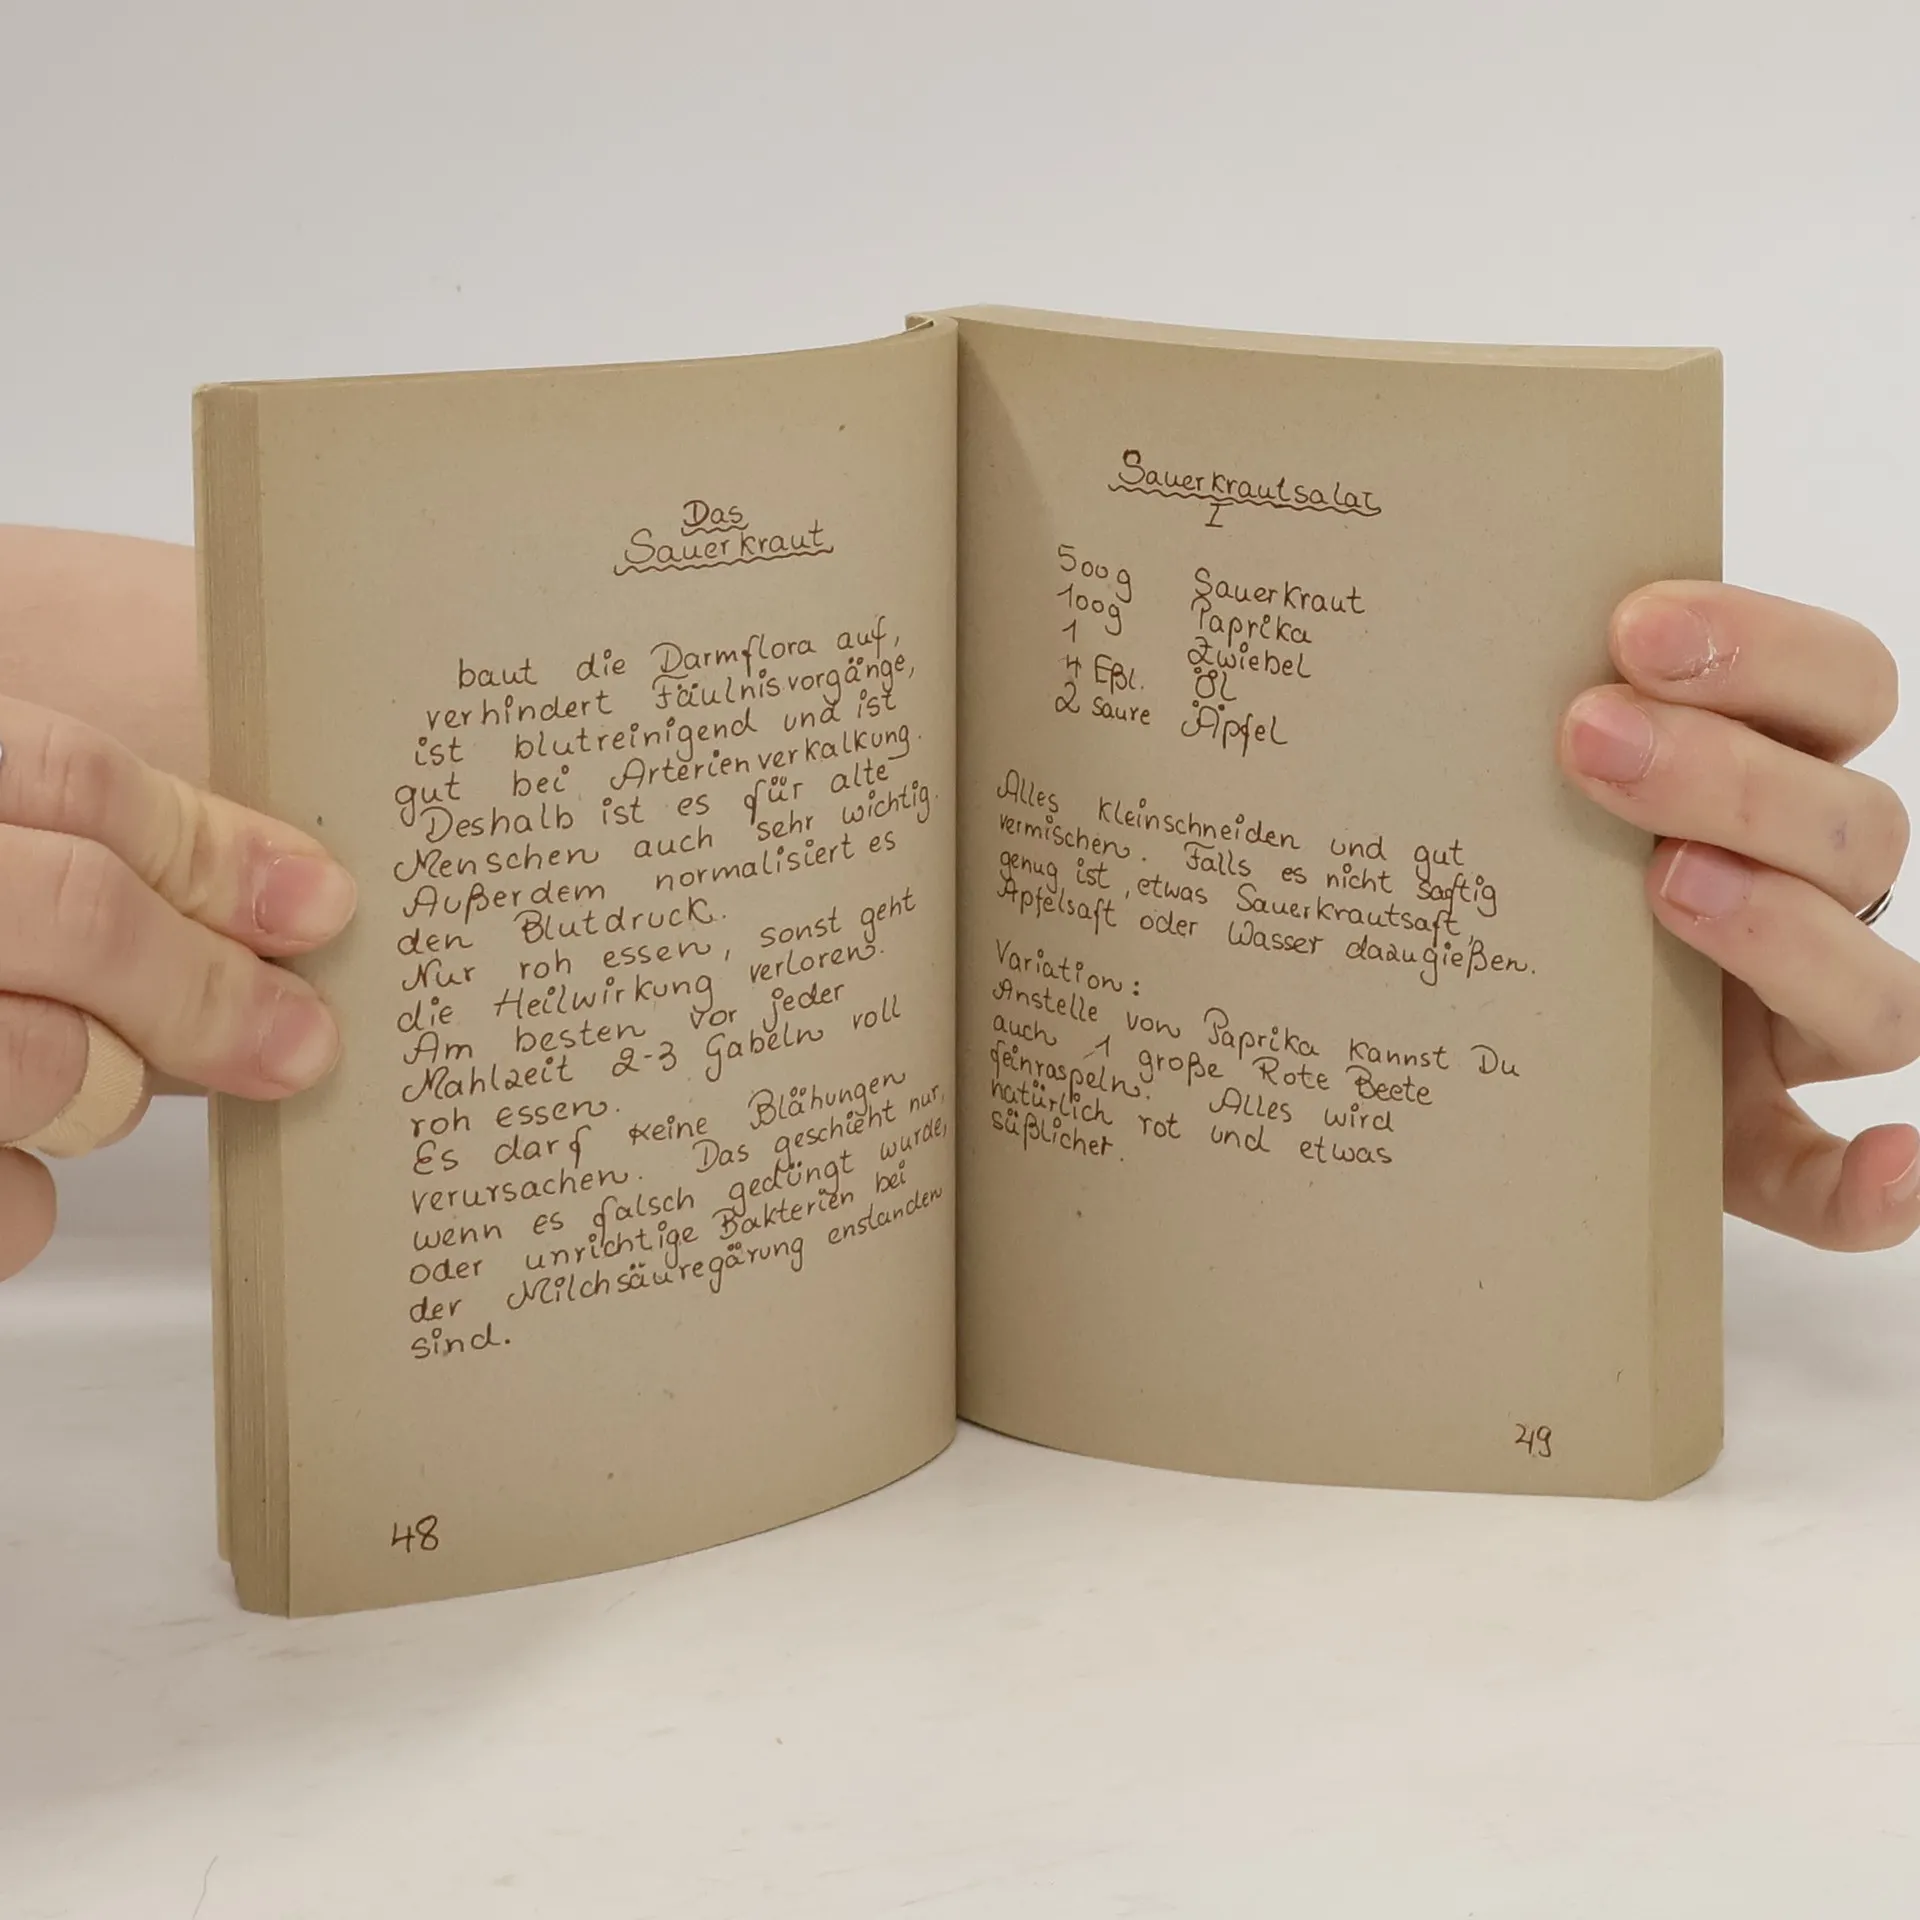 Das
Sauerkraut
baut die Darmflora auf,
verhindert Fäulnisvorgänge,
ist blutreinigend und ist
gut bei Arterienverkalkung.
Deshalb ist es für alte
Menschen auch sehr wichtig.
Außerdem normalisiert es
den Blutdruck.
Nur roh essen, sonst geht
die Heilwirkung verloren.
Am besten vor jeder
Mahlzeit 2-3 Gabeln voll
roh essen.
Es darf keine Blähungen
verursachen. Das geschieht nur,
wenn es falsch gedüngt wurde,
oder unrichtige Bakterien bei
der Milchsäuregärung enstanden
sind.
48
Sauerkrautsalat
I
500g Sauerkraut
100g Paprika
1 Zwiebel
4 Eßl. Öl
2 saure Äpfel
Alles kleinschneiden und gut
vermischen. Falls es nicht saftig
genug ist, etwas Sauerkrautsaft,
Apfelsaft oder Wasser dazugießen.
Variation:
Anstelle von Paprika kannst Du
auch 1 große Rote Beete
feinraspeln. Alles wird
natürlich rot und etwas
süßlicher.
49